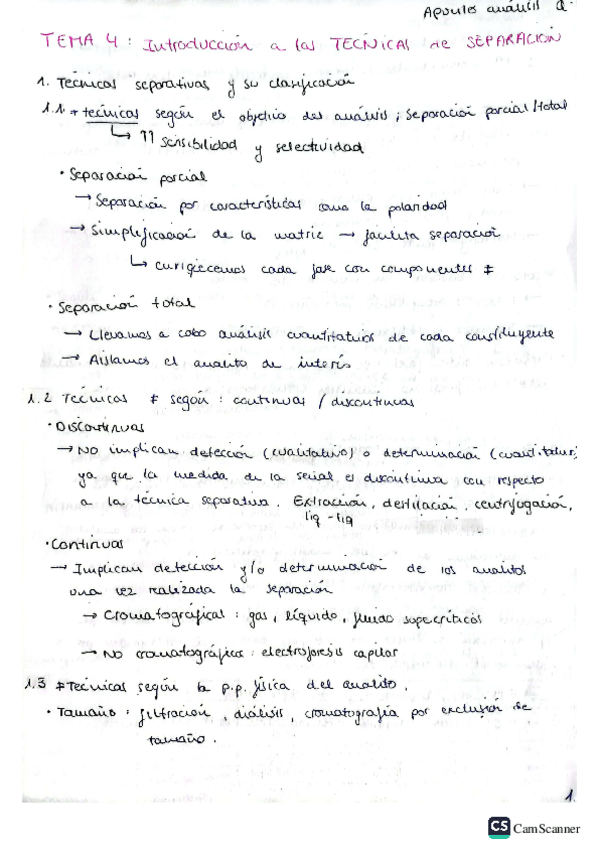 Apuntes análisis Q.
TEMA 4: Introducción a las TECNICAS de SEPARACION
1. Técnicas separativas y su clasificación
1.1 ≠ técnicas según el objetivo del análisis; separación parcial/total
↳ ↑↑ sensibilidad y selectividad
· Separación parcial
→ Separación por características como la polaridad
→ Simplificación de la matriz → facilita separación
↳ enriquecemos cada fase con componentes ≠
· Separación total
→ Llevamos a cabo análisis cuantitativos de cada constituyente
→ Aislamos el analito de interés
1.2 Técnicas ≠ según: continuas / discontinuas
· Discontinuas
→ No implican detección (cualitativo) o determinación (cuantitativ
ya que la medida de la señal es discontinua con respecto
a la técnica separativa. Extracción, destilación, centrifugación,
liq-liq
· Continuas
→ Implican detección y/o determinación de los analitos
una vez realizada la separación
→ Cromatográficas: gas, líquido, fluido supercríticos
→ No cromatográfica: electroforesis capilar
1.3 ≠ Técnicas según la p.p. física del analito.
· Tamaño: filtración, diálisis, cromatografía por exclusión de
tamaño.
1.
CS CamScanner